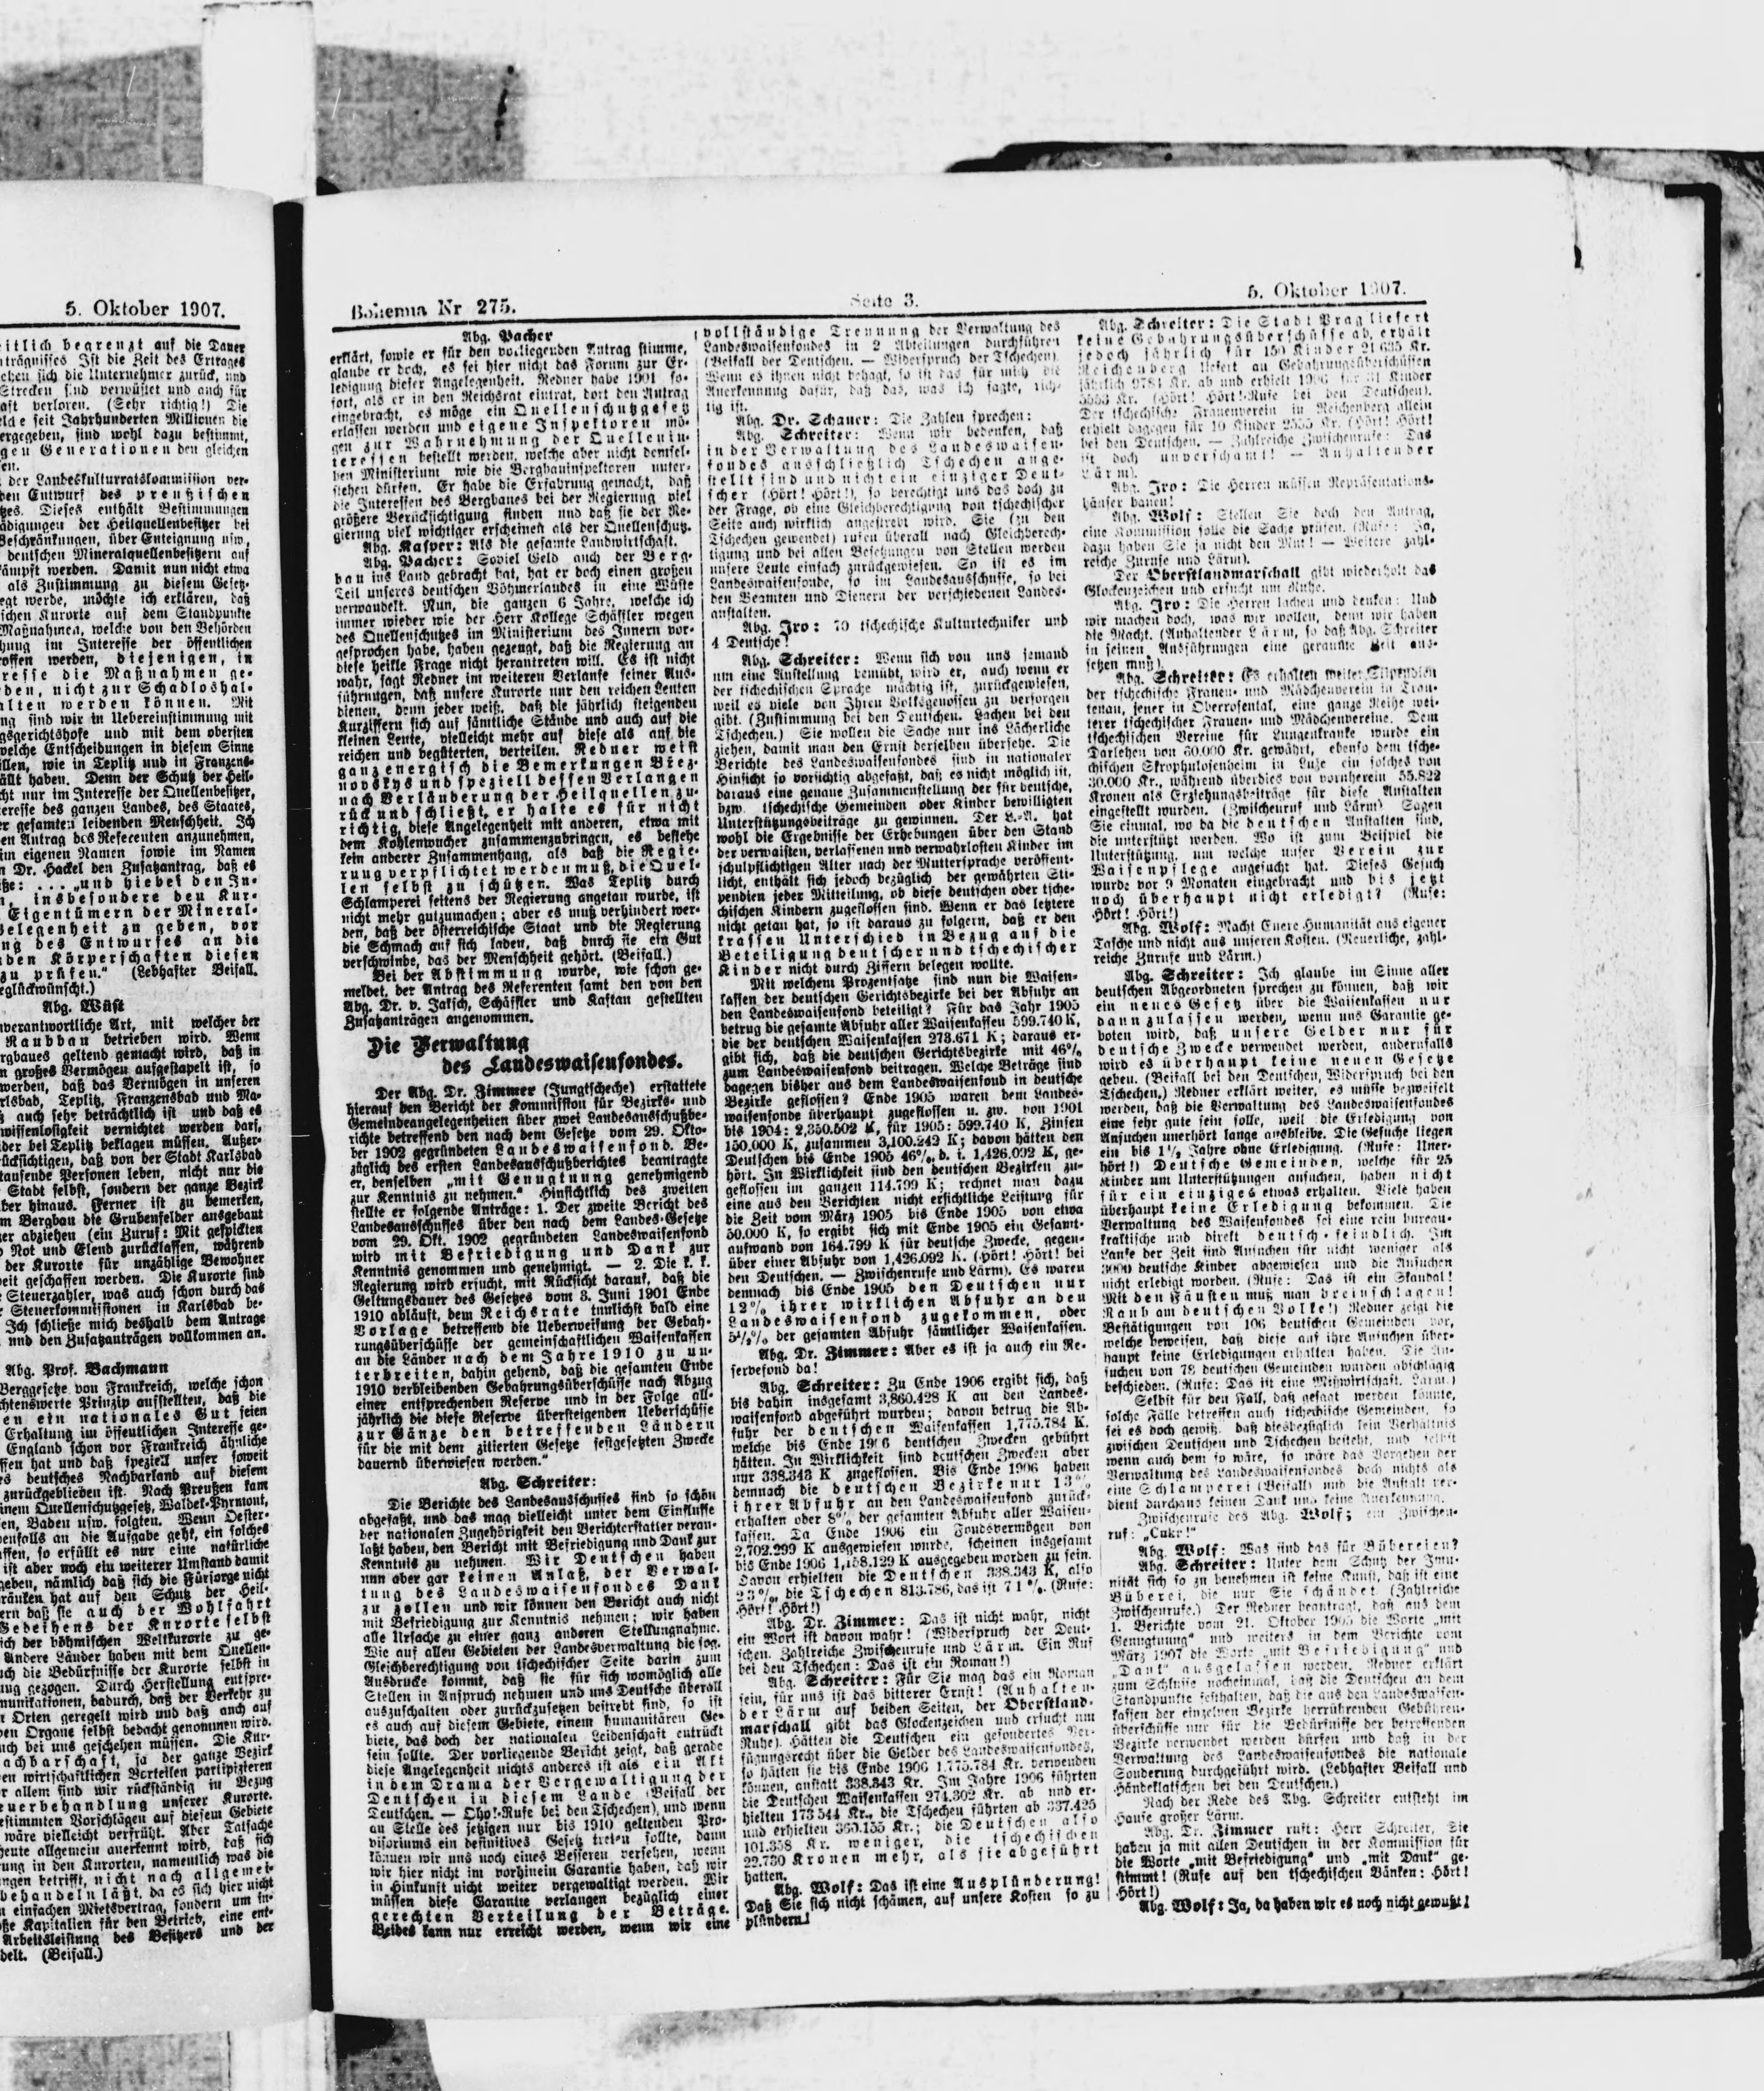 5. Oktober 1907.
eitlich begrenzt auf die Dauer
trägnisses Ist die Zeit des Ertrages
ehen sich die Unternehmer zurück, und
Strecken sind verwüstet und auch für
aft verloren. (Sehr richtig!) Die
elde seit Jahrhunderten Millionen die
ergegeben, sind wohl dazu bestimmt,
gen Generationen den gleichen
en.
der Landeskulturratskommission ver-
den Entwurf des preußischen
tzes. Dieses enthält Bestimmungen
ädigungen der Heilquellenbesitzer bei
Beschränkungen, über Enteignung usw.
deutschen Mineralquellenbesitzern auf
ämpft werden. Damit nun nicht etwa
als Zustimmung zu diesem Gesetz-
egt werde, möchte ich erklären, daß
schen Kurorte auf dem Standpunkte
Maßnahmen, welche von den Behörden
hung im Interesse der öffentlichen
offen werden, diejenigen, in
resse die Maßnahmen ge-
den, nicht zur Schadloshal-
alten werden können. Mit
ng sind wir in Uebereinstimmung mit
gsgerichtshofe und mit dem obersten
welche Entscheidungen in diesem Sinne
illen, wie in Teplitz und in Franzens-
ällt haben. Denn der Schutz der Heil-
cht nur im Interesse der Quellenbesitzer,
eresse des ganzen Landes, des Staates,
er gesamten leidenden Menschheit. Ich
en Antrag des Referenten anzunehmen,
im eigenen Namen sowie im Namen
n Dr. Hackel den Zusatzantrag, daß es
iße: . . . „und hiebei den In-
n, insbesondere den Kur-
Eigentümern der Mineral-
Gelegenheit zu geben, vor
ng des Entwurfes an die
den Körperschaften diesen
zu prüfen.“ (Lebhafter Beifall.
eglückwünscht.)
Abg. Wüst
nverantwortliche Art, mit welcher der
Raubbau betrieben wird. Wenn
rgbaues geltend gemacht wird, daß in
n großes Vermögen aufgestapelt ist, so
werden, daß das Vermögen in unseren
rlsbad, Teplitz, Franzensbad und Ma-
ß auch sehr beträchtlich ist und daß es
wissenlosigkeit vernichtet werden darf,
der bei Teplitz beklagen müssen. Außer-
ücksichtigen, daß von der Stadt Karlsbad
tausende Personen leben, nicht nur die
Stadt selbst, sondern der ganze Bezirk
ber hinaus. Ferner ist zu bemerken,
m Bergbau die Grubenfelder ausgebaut
er abziehen (ein Zuruf: Mit gespickten
Not und Elend zurücklassen, während
der Kurorte für unzählige Bewohner
beit geschaffen werden. Die Kurorte sind
Steuerzahler, was auch schon durch das
Steuerkommissionen in Karlsbad be-
Ich schließe mich deshalb dem Antrage
und den Zusatzanträgen vollkommen an.
Abg. Prof. Bachmann
Berggesetze von Frankreich, welche schon
chtenswerte Prinzip aufstellten, daß die
en ein nationales Gut seien
Erhaltung im öffentlichen Interesse ge-
England schon vor Frankreich ähnliche
ffen hat und daß speziell unser soweit
es deutsches Nachbarland auf diesem
zurückgeblieben ist. Nach Preußen kam
inem Quellenschutzgesetz, Waldek-Pyrmont,
en, Baden usw. folgten. Wenn Oester-
enfalls an die Aufgabe geht, ein solches
ffen, so erfüllt es nur eine natürliche
ist aber noch ein weiterer Umstand damit
geben, nämlich daß sich die Fürsorge nicht
ränken hat auf den Schutz der Heil-
ern daß sie auch der Wohlfahrt
Gedeihens der Kurorte selbst
ich der böhmischen Weltkurorte zu ge-
Andere Länder haben mit dem Quellen-
uch die Bedürfnisse der Kurorte selbst in
ung gezogen. Durch Herstellung entspre-
munikationen, dadurch, daß der Verkehr zu
Orten geregelt wird und daß auch auf
ben Organe selbst bedacht genommen wird.
uch bei uns geschehen müssen. Die Kur-
achbarschaft, ja der ganze Bezirk
en wirtschaftlichen Vorteilen partizipieren
r allem sind wir rückständig in Bezug
euerbehandlung unserer Kurorte.
estimmten Vorschlägen auf diesem Gebiete
wäre vielleicht verfrüht. Aber Tatsache
heute allgemein anerkannt wird, daß sich
rung in den Kurorten, namentlich was die
ngen betrifft, nicht nach allgemei-
behandeln läßt, da es sich hier nicht
n einfachen Mietsvertrag, sondern um in-
oße Kapitalien für den Betrieb, eine ent-
Arbeitsleistung des Besitzers und der
delt. (Beifall.)
Bohemia Nr 275.
Seite 3.
5. Oktober 1907.
Abg. Pacher
erklärt, sowie er für den vorliegenden Antrag stimme,
glaube er doch, es sei hier nicht das Forum zur Er-
ledigung dieser Angelegenheit. Redner habe 1901 so-
fort, als er in den Reichsrat eintrat, dort den Antrag
eingebracht, es möge ein Quellenschutzgesetz
erlassen werden und eigene Inspektoren mö-
gen zur Wahrnehmung der Quellenin-
teressen bestellt werden, welche aber nicht demsel-
ben Ministerium wie die Bergbauinspektoren unter-
stehen dürfen. Er habe die Erfahrung gemacht, daß
die Interessen des Bergbaues bei der Regierung viel
größere Berücksichtigung finden und daß sie der Re-
gierung viel wichtiger erscheinen als der Quellenschutz.
Abg. Kasper: Als die gesamte Landwirtschaft.
Abg. Pacher: Soviel Geld auch der Berg-
bau ins Land gebracht hat, hat er doch einen großen
Teil unseres deutschen Böhmerlandes in eine Wüste
verwandelt. Nun, die ganzen 6 Jahre, welche ich
immer wieder wie der Herr Kollege Schäffler wegen
des Quellenschutzes im Ministerium des Innern vor-
gesprochen habe, haben gezeugt, daß die Regierung an
diese heikle Frage nicht herantreten will. Es ist nicht
wahr, sagt Redner im weiteren Verlaufe seiner Aus-
führungen, daß unsere Kurorte nur den reichen Leuten
dienen, denn jeder weiß, daß die jährlich steigenden
Kurziffern sich auf sämtliche Stände und auch auf die
kleinen Leute, vielleicht mehr auf diese als auf die
reichen und begüterten, verteilen. Redner weist
ganz energisch die Bemerkungen Brez-
novskys und speziell dessen Verlangen
nach Verländerung der Heilquellen zu-
rück und schließt, er halte es für nicht
richtig, diese Angelegenheit mit anderen, etwa mit
dem Kohlenwucher zusammenzubringen, es bestehe
kein anderer Zusammenhang, als daß die Regie-
rung verpflichtet werden muß, die Quel-
len selbst zu schützen. Was Teplitz durch
Schlamperei seitens der Regierung angetan wurde, ist
nicht mehr gutzumachen; aber es muß verhindert wer-
den, daß der österreichische Staat und die Regierung
die Schmach auf sich laden, daß durch sie ein Gut
verschwinde, das der Menschheit gehört. (Beifall.)
Bei der Abstimmung wurde, wie schon ge-
meldet, der Antrag des Referenten samt den von den
Abg. Dr. v. Jaksch, Schäffler und Kastan gestellten
Zusatzanträgen angenommen.
Die Verwaltung
des Landeswaisenfondes.
Der Abg. Dr. Zimmer (Jungtscheche) erstattete
hierauf den Bericht der Kommission für Bezirks- und
Gemeindeangelegenheiten über zwei Landesausschußbe-
richte betreffend den nach dem Gesetze vom 29. Okto-
ber 1902 gegründeten Landeswaisenfond. Be-
züglich des ersten Landesausschußberichtes beantragte
er, denselben „mit Genugtuung genehmigend
zur Kenntnis zu nehmen.“ Hinsichtlich des zweiten
stellte er folgende Anträge: 1. Der zweite Bericht des
Landesausschusses über den nach dem Landes-Gesetze
vom 29. Okt. 1902 gegründeten Landeswaisenfond
wird mit Befriedigung und Dank zur
Kenntnis genommen und genehmigt. — 2. Die k. k.
Regierung wird ersucht, mit Rücksicht darauf, daß die
Geltungsdauer des Gesetzes vom 3. Juni 1901 Ende
1910 abläuft, dem Reichsrate tunlichst bald eine
Vorlage betreffend die Ueberweisung der Gebah-
rungsüberschüsse der gemeinschaftlichen Waisenkassen
an die Länder nach dem Jahre 1910 zu un-
terbreiten, dahin gehend, daß die gesamten Ende
1910 verbleibenden Gebahrungsüberschüsse nach Abzug
einer entsprechenden Reserve und in der Folge all-
jährlich die diese Reserve übersteigenden Ueberschüsse
zur Gänze den betreffenden Ländern
für die mit dem zitierten Gesetze festgesetzten Zwecke
dauernd überwiesen werden.“
Abg. Schreiter:
Die Berichte des Landesausschusses sind so schön
abgefaßt, und das mag vielleicht unter dem Einflusse
der nationalen Zugehörigkeit den Berichterstatter veran-
laßt haben, den Bericht mit Befriedigung und Dank zur
Kenntnis zu nehmen. Wir Deutschen haben
nun aber gar keinen Anlaß, der Verwal-
tung des Landeswaisenfondes Dank
zu zollen und wir können den Bericht auch nicht
mit Befriedigung zur Kenntnis nehmen; wir haben
alle Ursache zu einer ganz anderen Stellungnahme.
Wie auf allen Gebieten der Landesverwaltung die sog.
Gleichberechtigung von tschechischer Seite darin zum
Ausdrucke kommt, daß sie für sich womöglich alle
Stellen in Anspruch nehmen und uns Deutsche überall
auszuschalten oder zurückzusetzen bestrebt sind, so ist
es auch auf diesem Gebiete, einem humanitären Ge-
biete, das doch der nationalen Leidenschaft entrückt
sein sollte. Der vorliegende Bericht zeigt, daß gerade
diese Angelegenheit nichts anderes ist als ein Akt
in dem Drama der Vergewaltigung der
Deutschen in diesem Lande (Beifall der
Deutschen. — Oho!-Rufe bei den Tschechen), und wenn
an Stelle des jetzigen nur bis 1910 geltenden Pro-
visoriums ein definitives Gesetz treten sollte, dann
können wir uns noch eines Besseren versehen, wenn
wir hier nicht im vorhinein Garantie haben, daß wir
in Hinkunft nicht weiter vergewaltigt werden. Wir
müssen diese Garantie verlangen bezüglich einer
gerechten Verteilung der Beträge.
Beides kann nur erreicht werden, wenn wir eine
vollständige Trennung der Verwaltung des
Landeswaisenfondes in 2 Abteilungen durchführen
(Beifall der Deutschen. — Widerspruch der Tschechen)
Wenn es ihnen nicht behagt, so ist das für mich die
Anerkennung dafür, daß das, was ich sagte, rich-
tig ist.
Abg. Dr. Schauer: Die Zahlen sprechen:
Abg. Schreiter: Wenn wir bedenken, daß
in der Verwaltung des Landeswaisen-
fondes ausschließlich Tschechen ange-
stellt sind und nicht ein einziger Deut-
scher (Hört! Hört!), so berechtigt uns das doch zu
der Frage, ob eine Gleichberechtigung von tschechischer
Seite auch wirklich angestrebt wird. Sie (zu den
Tschechen gewendet) rufen überall nach Gleichberech-
tigung und bei allen Besetzungen von Stellen werden
unsere Leute einfach zurückgewiesen. So ist es im
Landeswaisenfonde, so im Landesausschusse, so bei
den Beamten und Dienern der verschiedenen Landes-
anstalten.
Abg. Iro: 70 tschechische Kulturtechniker und
4 Deutsche!
Abg. Schreiter: Wenn sich von uns jemand
um eine Anstellung bemüht, wird er, auch wenn er
der tschechischen Sprache mächtig ist, zurückgewiesen,
weil es viele von Ihren Volksgenossen zu versorgen
gibt. (Zustimmung bei den Deutschen. Lachen bei den
Tschechen.) Sie wollen die Sache nur ins Lächerliche
ziehen, damit man den Ernst derselben übersehe. Die
Berichte des Landeswaisenfondes sind in nationaler
Hinsicht so vorsichtig abgefaßt, daß es nicht möglich ist,
daraus eine genaue Zusammenstellung der für deutsche,
bzw. tschechische Gemeinden oder Kinder bewilligten
Unterstützungsbeiträge zu gewinnen. Der L.-A. hat
wohl die Ergebnisse der Erhebungen über den Stand
der verwaisten, verlassenen und verwahrlosten Kinder im
schulpflichtigen Alter nach der Muttersprache veröffent-
licht, enthält sich jedoch bezüglich der gewährten Sti-
pendien jeder Mitteilung, ob diese deutschen oder tsche-
chischen Kindern zugeflossen sind. Wenn er das letztere
nicht getan hat, so ist daraus zu folgern, daß er den
krassen Unterschied in Bezug auf die
Beteiligung deutscher und tschechischer
Kinder nicht durch Ziffern belegen wollte.
Mit welchem Prozentsatze sind nun die Waisen-
kassen der deutschen Gerichtsbezirke bei der Abfuhr an
den Landeswaisenfond beteiligt? Für das Jahr 1905
betrug die gesamte Abfuhr aller Waisenkassen 599.740 K,
die der deutschen Waisenkassen 273.671 K; daraus er-
gibt sich, daß die deutschen Gerichtsbezirke mit 46%
zum Landeswaisenfond beitragen. Welche Beträge sind
dagegen bisher aus dem Landeswaisenfond in deutsche
Bezirke geflossen? Ende 1905 waren dem Landes-
waisenfonde überhaupt zugeflossen u. zw. von 1901
bis 1904: 2,350.502 K, für 1905: 599.740 K, Zinsen
150.000 K, zusammen 3,100.242 K; davon hätten den
Deutschen bis Ende 1905 46%, d. i. 1,426.092 K, ge-
hört. In Wirklichkeit sind den deutschen Bezirken zu-
geflossen im ganzen 114.799 K; rechnet man dazu
eine aus den Berichten nicht ersichtliche Leistung für
die Zeit vom März 1905 bis Ende 1905 von etwa
50.000 K, so ergibt sich mit Ende 1905 ein Gesamt-
aufwand von 164.799 K für deutsche Zwecke, gegen-
über einer Abfuhr von 1,426.092 K. (Hört! Hört! bei
den Deutschen. — Zwischenrufe und Lärm). Es waren
demnach bis Ende 1905 den Deutschen nur
12% ihrer wirklichen Abfuhr an den
Landeswaisenfond zugekommen, oder
5½% der gesamten Abfuhr sämtlicher Waisenkassen.
Abg. Dr. Zimmer: Aber es ist ja auch ein Re-
servefond da!
Abg. Schreiter: Zu Ende 1906 ergibt sich, daß
bis dahin insgesamt 3,860.428 K an den Landes-
waisenfond abgeführt wurden; davon betrug die Ab-
fuhr der deutschen Waisenkassen 1,775.784 K.
welche bis Ende 1906 deutschen Zwecken gebührt
hätten. In Wirklichkeit sind deutschen Zwecken aber
nur 338.343 K zugeflossen. Bis Ende 1906 haben
demnach die deutschen Bezirke nur 13%
ihrer Abfuhr an den Landeswaisenfond zurück-
erhalten oder 8% der gesamten Abfuhr aller Waisen-
kassen. Da Ende 1906 ein Fondsvermögen von
2,702.299 K ausgewiesen wurde, scheinen insgesamt
bis Ende 1906 1,158.129 K ausgegeben worden zu sein.
Davon erhielten die Deutschen 338.343 K, also
23%, die Tschechen 813.786, das ist 71%. (Rufe:
Hört! Hört!)
Abg. Dr. Zimmer: Das ist nicht wahr, nicht
ein Wort ist davon wahr! (Widerspruch der Deut-
schen. Zahlreiche Zwischenrufe und Lärm. Ein Ruf
bei den Tschechen: Das ist ein Roman!)
Abg. Schreiter: Für Sie mag das ein Roman
sein, für uns ist das bitterer Ernst! (Anhalten-
der Lärm auf beiden Seiten, der Oberstland-
marschall gibt das Glockenzeichen und ersucht um
Ruhe). Hätten die Deutschen ein gesondertes Ver-
fügungsrecht über die Gelder des Landeswaisenfondes,
so hätten sie bis Ende 1906 1,775.784 Kr. verwenden
können, anstatt 338.343 Kr. Im Jahre 1906 führten
die Deutschen Waisenkassen 274.302 Kr. ab und er-
hielten 173.544 Kr., die Tschechen führten ab 337.425
und erhielten 360.155 Kr.; die Deutschen also
101.358 Kr. weniger, die tschechischen
22.730 Kronen mehr, als sie abgeführt
hatten.
Abg. Wolf: Das ist eine Ausplünderung!
Daß Sie sich nicht schämen, auf unsere Kosten so zu
plündern!
Abg. Schreiter: Die Stadt Prag liefert
keine Gebahrungsüberschüsse ab, erhält
jedoch jährlich für 150 Kinder 21.635 Kr.
Reichenberg liefert an Gebahrungsüberschüssen
jährlich 9781 Kr. ab und erhielt 1906 für 31 Kinder
5553 Kr. (Hört! Hört!-Rufe bei den Deutschen).
Der tschechische Frauenverein in Reichenberg allein
erhielt dagegen für 10 Kinder 2555 Kr. (Hört! Hört!
bei den Deutschen. — Zahlreiche Zwischenrufe: Das
ist doch unverschämt! — Anhaltender
Lärm).
Abg. Iro: Die Herren müssen Repräsentations-
häuser bauen!
Abg. Wolf: Stellen Sie doch den Antrag,
eine Kommission solle die Sache prüfen. (Rufe: Ja,
dazu haben Sie ja nicht den Mut! — Weitere zahl-
reiche Zurufe und Lärm).
Der Oberstlandmarschall gibt wiederholt das
Glockenzeichen und ersucht um Ruhe.
Abg. Iro: Die Herren lachen und denken: Und
wir machen doch, was wir wollen, denn wir haben
die Macht. (Anhaltender Lärm, so daß Abg. Schreiter
in seinen Ausführungen eine geraume Zeit aus-
setzen muß).
Abg. Schreiter: Es erhalten weiter Stipendien
der tschechische Frauen- und Mädchenverein in Trau-
tenau, jener in Oberrosental, eine ganze Reihe wei-
terer tschechischer Frauen- und Mädchenvereine. Dem
tschechischen Vereine für Lungenkranke wurde ein
Darlehen von 30.000 Kr. gewährt, ebenso dem tsche-
chischen Skrophulosenheim in Luže ein solches von
30.000 Kr., während überdies von vornherein 55.822
Kronen als Erziehungsbeiträge für diese Anstalten
eingestellt wurden. (Zwischenruf und Lärm) Sagen
Sie einmal, wo da die deutschen Anstalten sind,
die unterstützt werden. Wo ist zum Beispiel die
Unterstützung, um welche unser Verein zur
Waisenpflege angesucht hat. Dieses Gesuch
wurde vor 9 Monaten eingebracht und bis jetzt
noch überhaupt nicht erledigt? (Rufe:
Hört! Hört!)
Abg. Wolf: Macht Euere Humanität aus eigener
Tasche und nicht aus unseren Kosten. (Neuerliche, zahl-
reiche Zurufe und Lärm.)
Abg. Schreiter: Ich glaube im Sinne aller
deutschen Abgeordneten sprechen zu können, daß wir
ein neues Gesetz über die Waisenkassen nur
dann zulassen werden, wenn uns Garantie ge-
boten wird, daß unsere Gelder nur für
deutsche Zwecke verwendet werden, andernfalls
wird es überhaupt keine neuen Gesetze
geben. (Beifall bei den Deutschen, Widerspruch bei den
Tschechen.) Redner erklärt weiter, es müsse bezweifelt
werden, daß die Verwaltung des Landeswaisenfondes
eine sehr gute sein solle, weil die Erledigung von
Ansuchen unerhört lange ausbleibe. Die Gesuche liegen
ein bis 1½ Jahre ohne Erledigung. (Rufe: Uner-
hört!) Deutsche Gemeinden, welche für 25
Kinder um Unterstützungen ansuchen, haben nicht
für ein einziges etwas erhalten. Viele haben
überhaupt keine Erledigung bekommen. Die
Verwaltung des Waisenfondes sei eine rein bureau-
kratische und direkt deutsch-feindlich. Im
Laufe der Zeit sind Ansuchen für nicht weniger als
3000 deutsche Kinder abgewiesen und die Ansuchen
nicht erledigt worden. (Rufe: Das ist ein Skandal!
Mit den Fäusten muß man dreinschlagen!
Raub am deutschen Volke!) Redner zeigt die
Bestätigungen von 106 deutschen Gemeinden vor,
welche beweisen, daß diese auf ihre Ansuchen über-
haupt keine Erledigungen erhalten haben. Die An-
suchen von 78 deutschen Gemeinden wurden abschlägig
beschieden. (Rufe: Das ist eine Mißwirtschaft. Lärm.)
Selbst für den Fall, daß gesagt werden könnte,
solche Fälle betreffen auch tschechische Gemeinden, so
sei es doch gewiß, daß diesbezüglich kein Verhältnis
zwischen Deutschen und Tschechen besteht, und selbst
wenn auch dem so wäre, so wäre das Vorgehen der
Verwaltung des Landeswaisenfondes doch nichts als
eine Schlamperei (Beifall) und die Anstalt ver-
dient durchaus keinen Dank und keine Anerkennung.
Zwischenrufe des Abg. Wolf; ein Zwischen-
ruf: „Cukr!“
Abg. Wolf: Was sind das für Bübereien?
Abg. Schreiter: Unter dem Schutz der Immu-
nität sich so zu benehmen ist keine Kunst, daß ist eine
Büberei, die nur Sie schändet (Zahlreiche
Zwischenrufe.) Der Redner beantragt, daß aus dem
1. Berichte vom 21. Oktober 1905 die Worte „mit
Genugtuung“ und weiters in dem Berichte vom
März 1907 die Worte „mit Befriedigung“ und
„Dank“ ausgelassen werden. Redner erklärt
zum Schlusse nocheinmal, daß die Deutschen an dem
Standpunkte festhalten, daß die aus den Landeswaisen-
kassen der einzelnen Bezirke herrührenden Gebühren-
überschüsse nur für die Bedürfnisse der betreffenden
Bezirke verwendet werden dürfen und daß in der
Verwaltung des Landeswaisenfondes die nationale
Sonderung durchgeführt wird. (Lebhafter Beifall und
Händeklatschen bei den Deutschen.)
Nach der Rede des Abg. Schreiter entsteht im
Hause großer Lärm.
Abg. Dr. Zimmer ruft: Herr Schreiter, Sie
haben ja mit allen Deutschen in der Kommission für
die Worte „mit Befriedigung“ und „mit Dank“ ge-
stimmt! (Rufe auf den tschechischen Bänken: Hört!
Hört!)
Abg. Wolf: Ja, da haben wir es noch nicht gewußt!